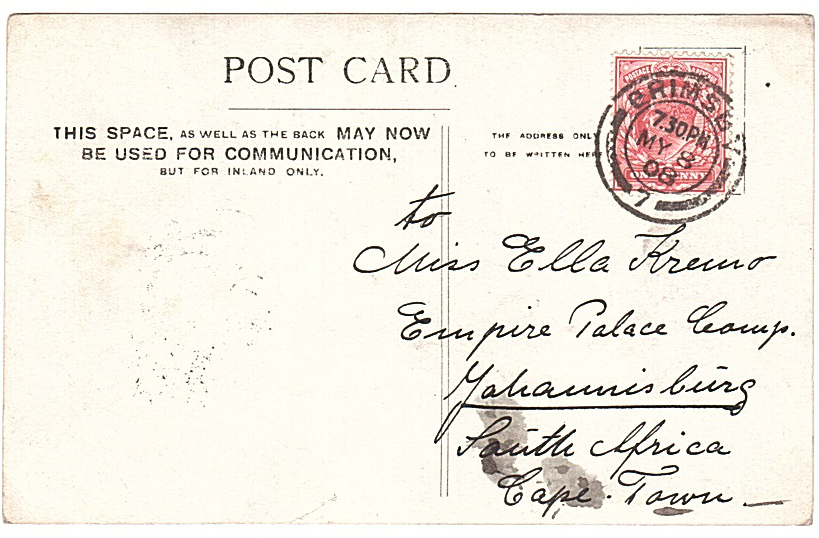 POST CARD
THIS SPACE, AS WELL AS THE BACK MAY NOW
BE USED FOR COMMUNICATION,
BUT FOR INLAND ONLY.
THE ADDRESS ONLY
TO BE WRITTEN HERE
POSTAGE REVENUE
ONE PENNY
GRIMSBY
7.30PM
MY 8
08
7
to
Miss Ella Kremo
Empire Palace Comp.
Johannisburg
South Africa
Cape-Town